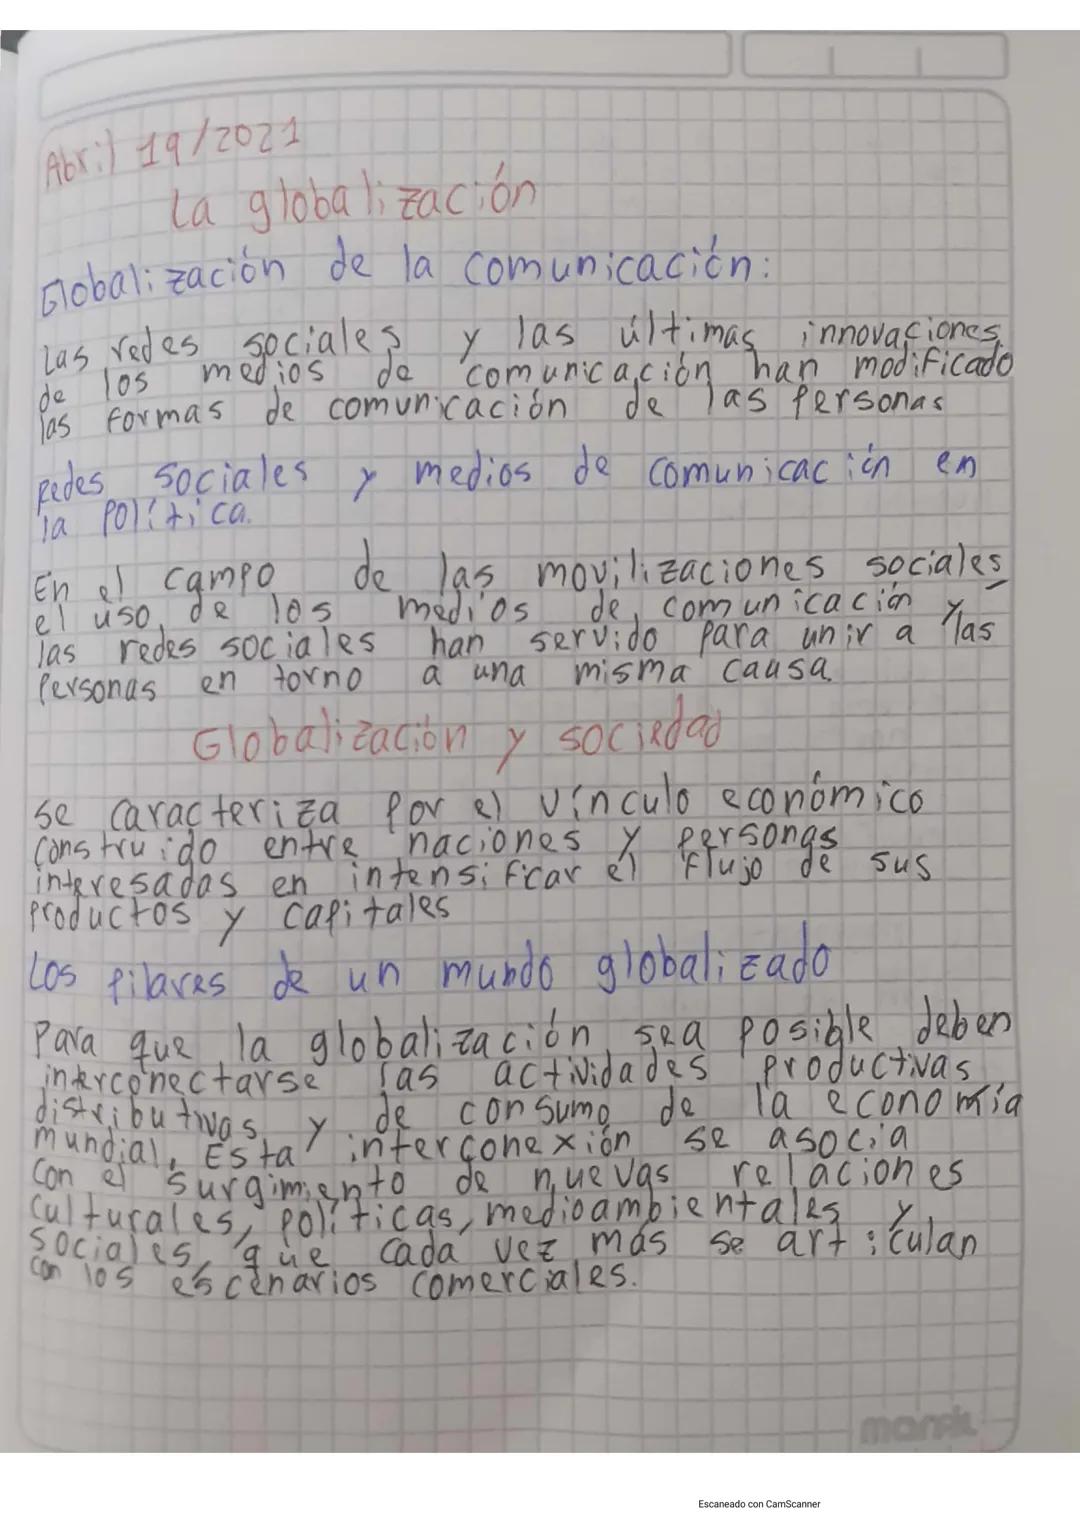 Abril 19/2021
La globalización
Globalización de la comunicación:
Las redes sociales y las últimas innovaciones
de los medios de comunicación han modificado
las formas de comunicación de las personas
Redes sociales y medios de comunicación en
la política.
En el campo de las movilizaciones sociales
el uso de los medios de comunicación y
las redes sociales han servido para unir a las
personas en torno a una misma causa.
Globalización y sociedad
se caracteriza por el vínculo económico
construido entre naciones y personas
interesadas en intensificar el flujo de sus
productos y capitales
Los pilares de un mundo globalizado
Para que la globalización sea posible deben
interconectarse las actividades productivas
distributivas y de consumo de la economía
mundial, Esta interconexión se asocia
con el surgimiento de nuevas relaciones
culturales, políticas, medioambientales y
sociales, que cada vez más se articulan
con los escenarios comerciales.
Escaneado con CamScanner